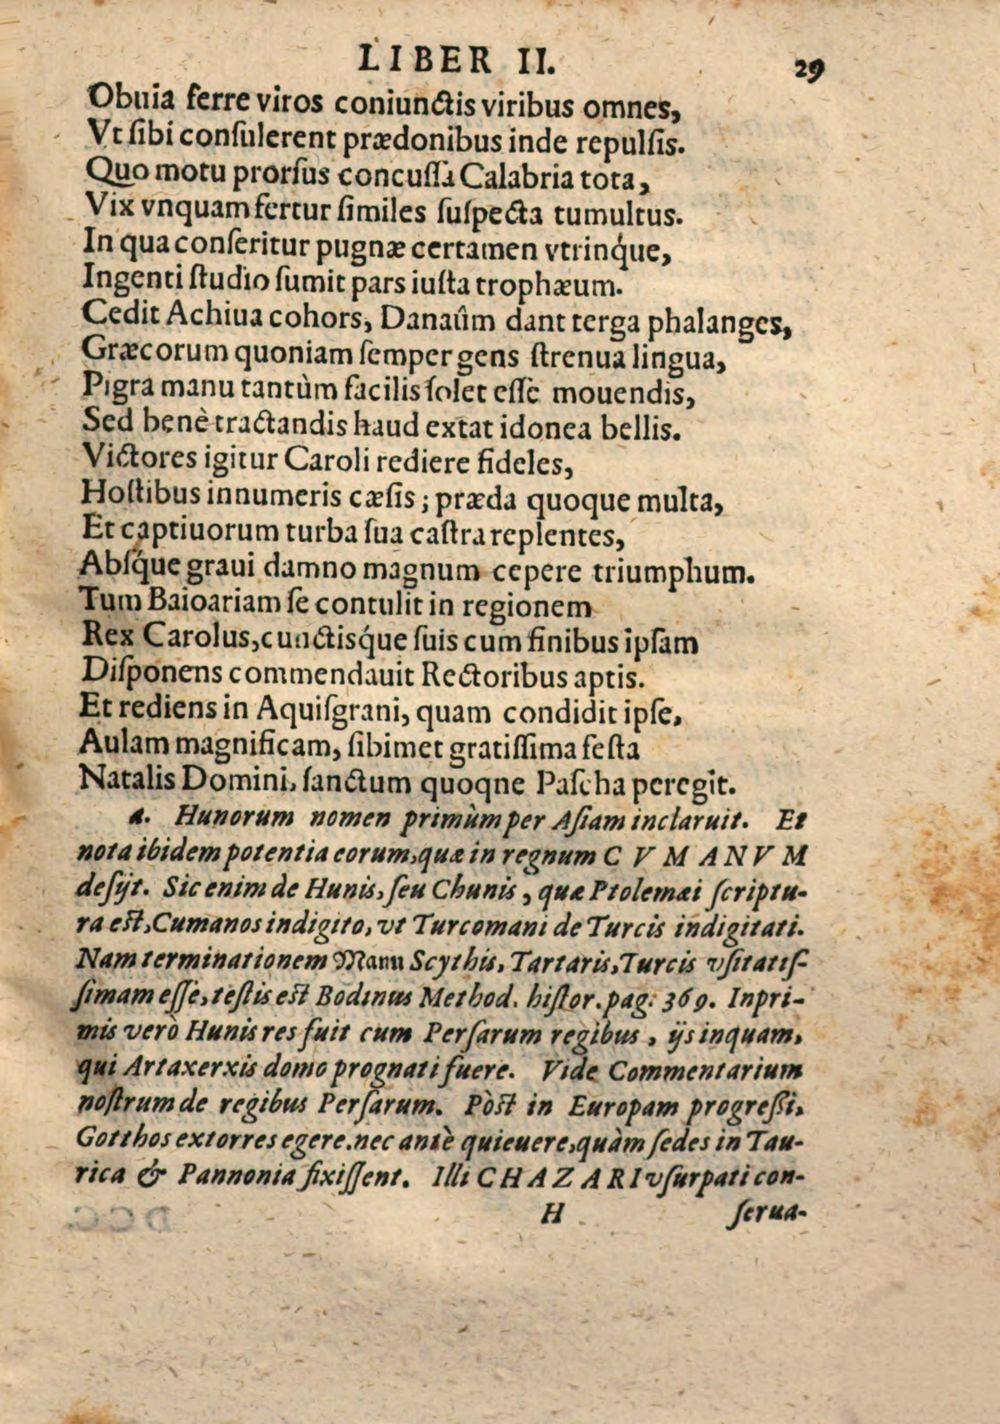 LIBER II. 29
Obuia ferre viros coniunctis viribus omnes,
Vt ſibi conſulerent prædonibus inde repulſis.
Quo motu prorſus concuſſa Calabria tota,
Vix vnquam fertur ſimiles ſuſpecta tumultus.
In qua conſeritur pugnæ certamen vtrinq́ue,
Ingenti ſtudio ſumit pars iuſta trophæum.
Cedit Achiua cohors, Danaûm dant terga phalanges,
Græcorum quoniam ſemper gens ſtrenua lingua,
Pigra manu tantùm facilis ſolet eſſe mouendis,
Sed benè tractandis haud extat idonea bellis.
Victores igitur Caroli rediere fideles,
Hoſtibus innumeris cæſis; præda quoque multa,
Et captiuorum turba ſua caſtra replentes,
Abſq́ue graui damno magnum cepere triumphum.
Tum Baioariam ſe contulit in regionem
Rex Carolus, cunctisq́ue ſuis cum finibus ipſam
Diſponens commendauit Rectoribus aptis.
Et rediens in Aquiſgrani, quam condidit ipſe,
Aulam magnificam, ſibimet gratiſſima feſta
Natalis Domini, ſanctum quoqne Paſcha peregit.
a. Hunorum nomen primùm per Aſiam inclaruit. Et
nota ibidem potentia eorum, quæ in regnum CVMANVM
deſijt. Sic enim de Hunis, ſeu Chunis, quæ Ptolemæi ſcriptu-
ra eſt, Cumanos indigito, vt Turcomani de Turcis indigitati.
Nam terminationem Mann Scythis, Tartaris, Turcis vſitatiſ-
ſimam eſſe, teſtis eſt Bodinus Method. hiſtor. pag. 369. Inpri-
mis verò Hunis res fuit cum Perſarum regibus, ijs inquam,
qui Artaxerxis domo prognati fuere. Vide Commentarium
noſtrum de regibus Perſarum. Pòſt in Europam progreſſi,
Gotthos extorres egere. nec antè quieuere, quàm ſedes in Tau-
rica & Pannonia fixiſſent. Illi CHAZARI vſurpati con-
H ſerua-